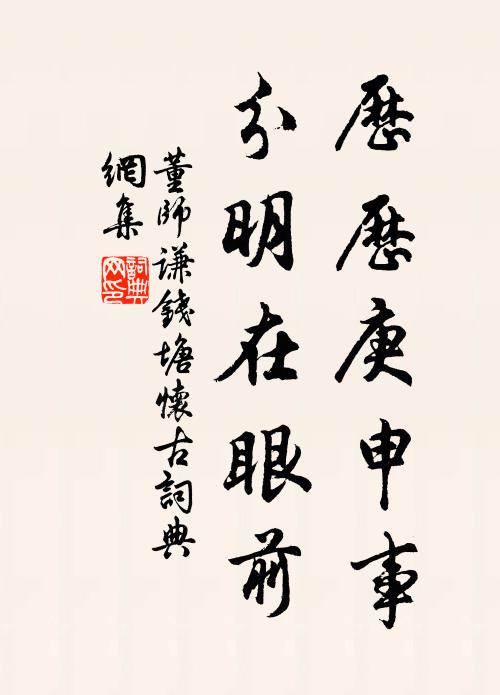 歷歷庚申事
分明在眼前
董師谦錢塘懷古詞典
網集
詞典
网印